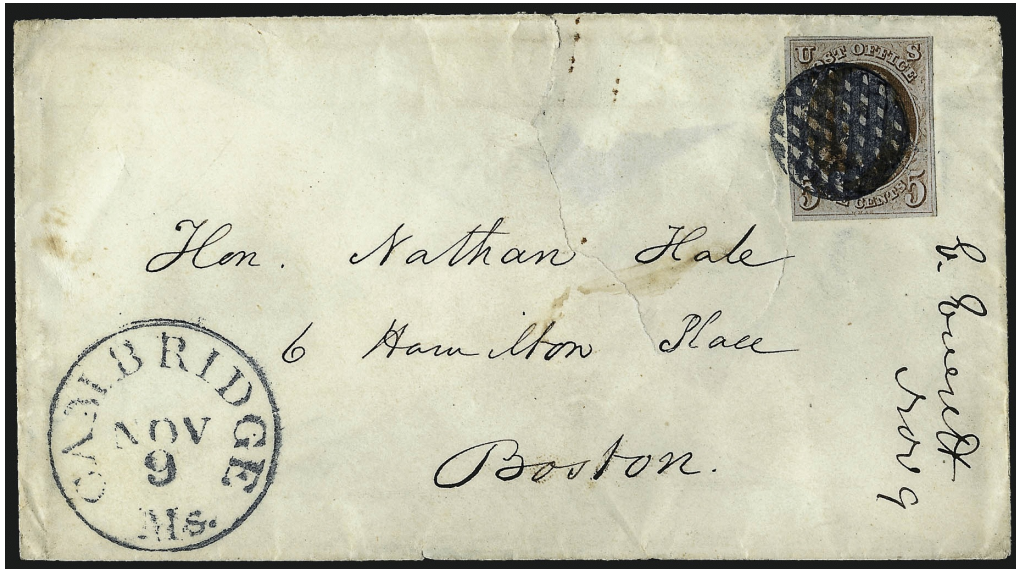 U S
POST OFFICE
5 CENTS 5
Hon. Nathan Hale
6 Hamilton Place
Boston.
CAMBRIDGE
NOV
9
Ms.
E. Everett.
Nov 9